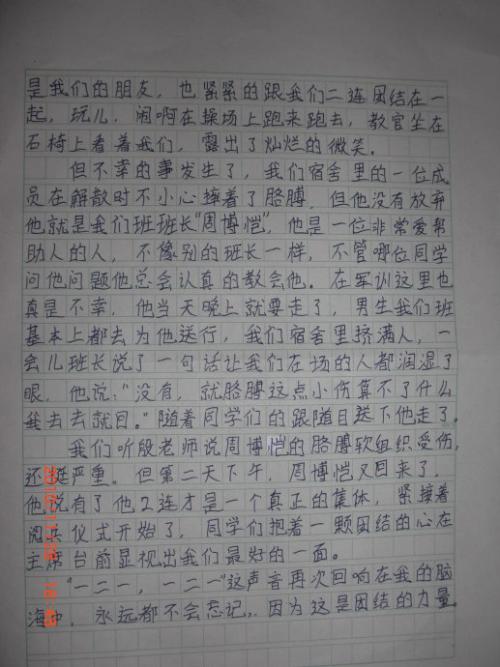 是我们的朋友，也紧紧的跟我们二连团结在一
起，玩儿，闹啊在操场上跑来跑去，教官坐在
石椅上看着我们，露出了灿烂的微笑。
但不幸的事发生了，我们宿舍里的一位成
员在解散时不小心摔着了胳膊，但他没有放弃
他就是我们班班长"周博恺"，他是一位非常爱帮
助人的人，不像别的班长一样，不管哪位同学
问他问题他总会认真的教会他。在军训这里也
真是不幸，他当天晚上就要走了，男生我们班
基本上都去为他送行，我们宿舍里挤满人，一
会儿班长说了一句话让我们在场的人都润湿了
眼，他说："没有，就胳膊这点小伤算不了什么
我去去就回。"随着同学们的跟随目送下他走了。
我们听殷老师说周博恺的胳膊软组织受伤，
还挺严重。但第二天下午，周博恺又回来了，
他说有了他2连才是一个真正的集体，紧接着
阅兵仪式开始了，同学们抱着一颗团结的心在
主席台前显视出我们最好的一面。
"一二一，一二一"这声音再次回响在我的脑
海中，永远都不会忘记，因为这是团结的力量